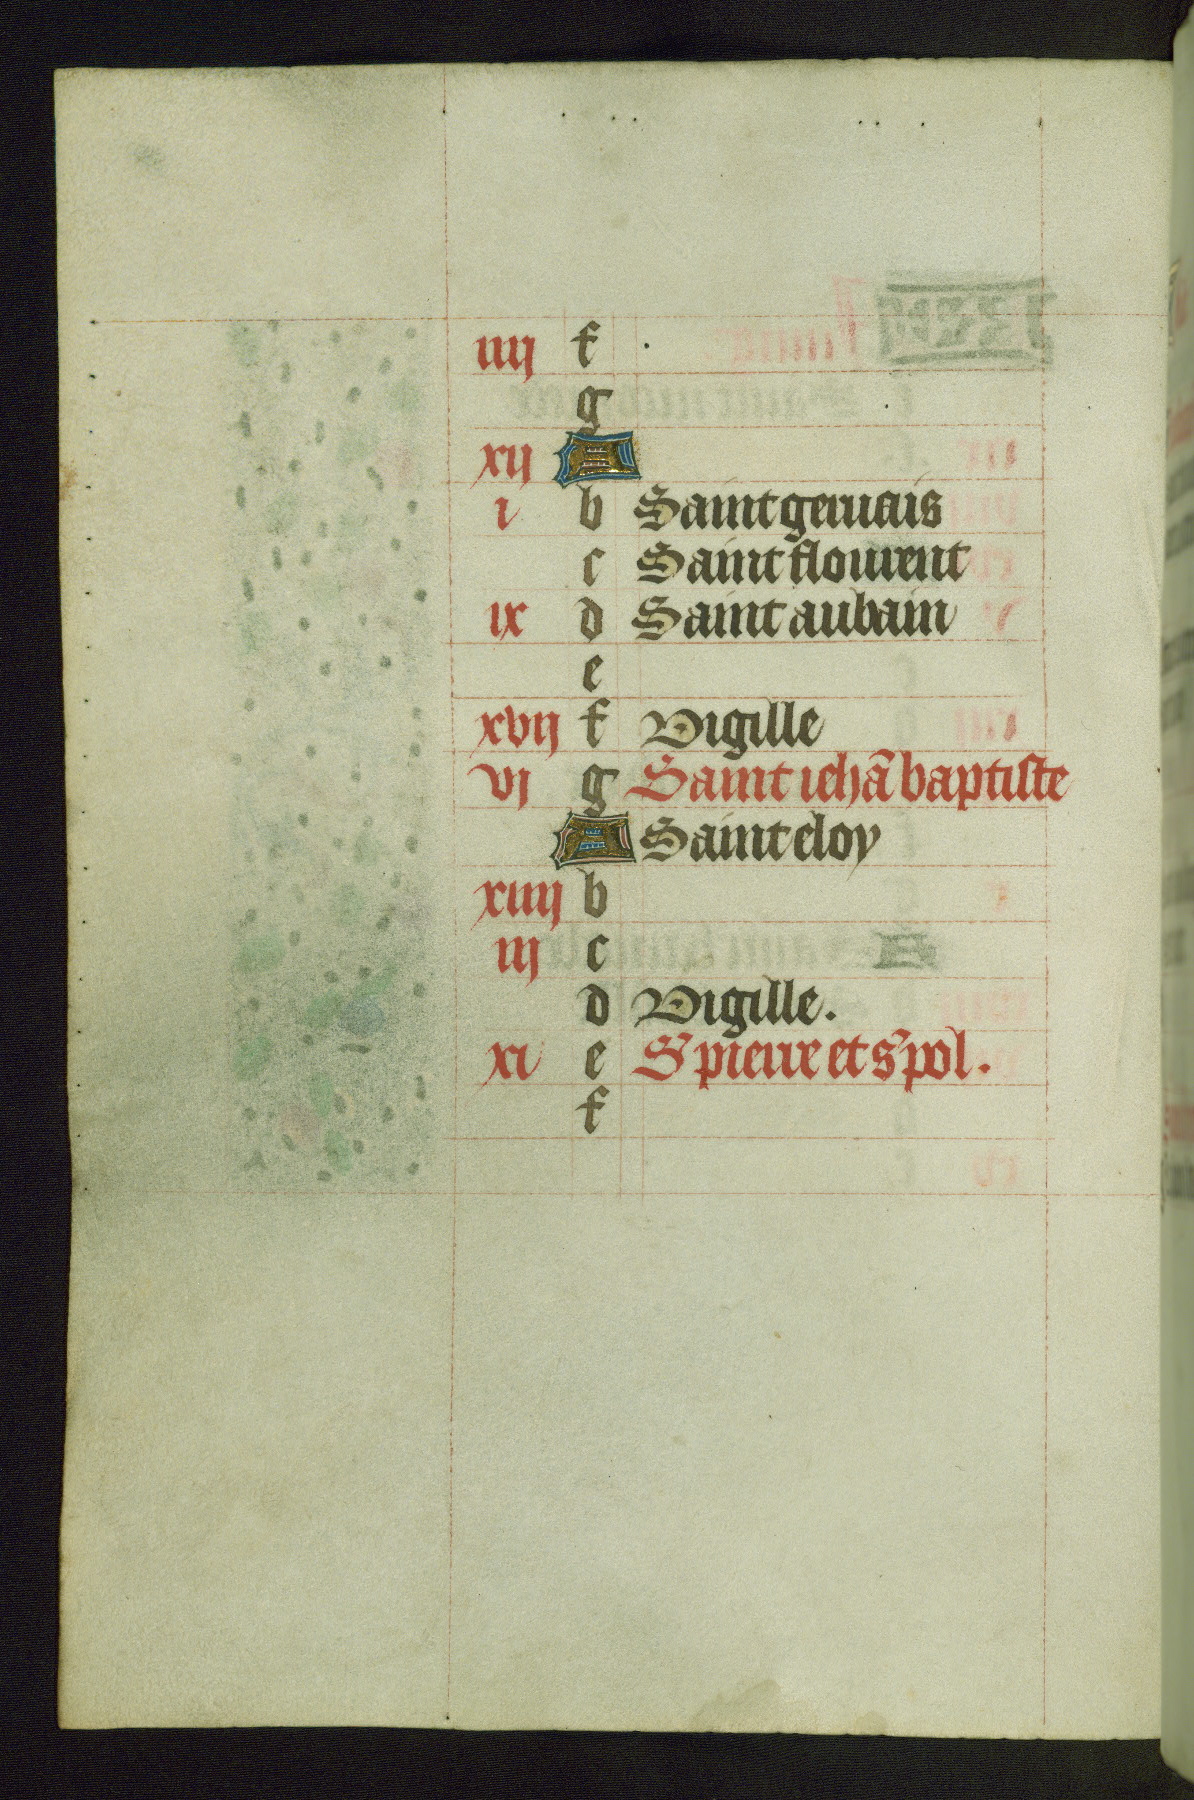 iiij f .
g
xij A
i b Saint geruais
c Saint flourent
ix d Saint aubain
e
xvij f Vigille
vj g Saint iehã baptiste
A Saint eloy
xiiij b
iij c
d Vigille.
xi e S' pierre et s' pol.
f